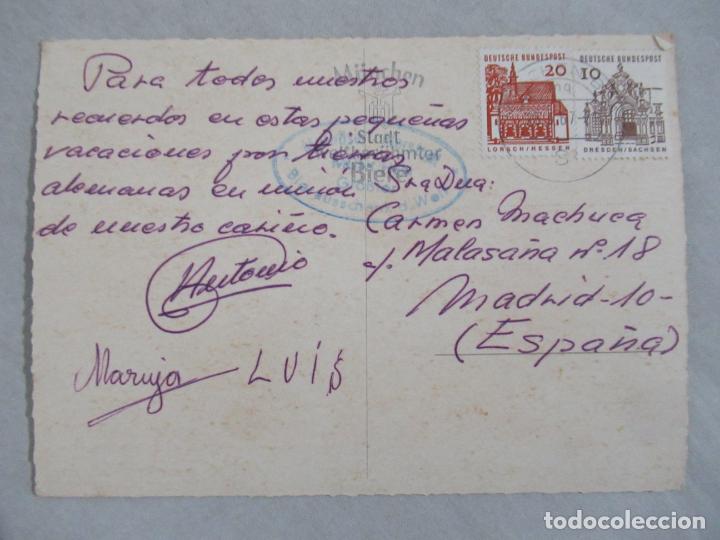 Para todos nuestros
recuerdos en estas pequeñas
vacaciones por tierras
alemanas en unión
de nuestro cariño.
Antonio
Maruja LUÍS
München
Stadt
weltberühmter
Biere
DEUTSCHE BUNDESPOST
20
LORSCH/HESSEN
DEUTSCHE BUNDESPOST
10
DRESDEN/SACHSEN
Sra Dña:
Carmen Machuca
c/. Malasaña nº 18
Madrid-10-
(España)
todocoleccion
todocoleccion.net